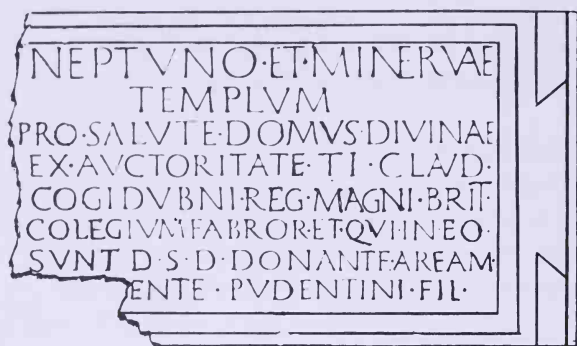 NEPTVNO·ET·MINERVAE
TEMPLVM
PRO·SALVTE·DOMVS·DIVINAE
EX·AVCTORITATE·TI·CLAVD·
COGIDVBNI·REG·MAGNI·BRIT·
COLEGIVM FABROR·ET·QVI·IN·EO·
SVNT D·S·D·DONANTE AREAM·
ENTE·PVDENTINI·FIL·